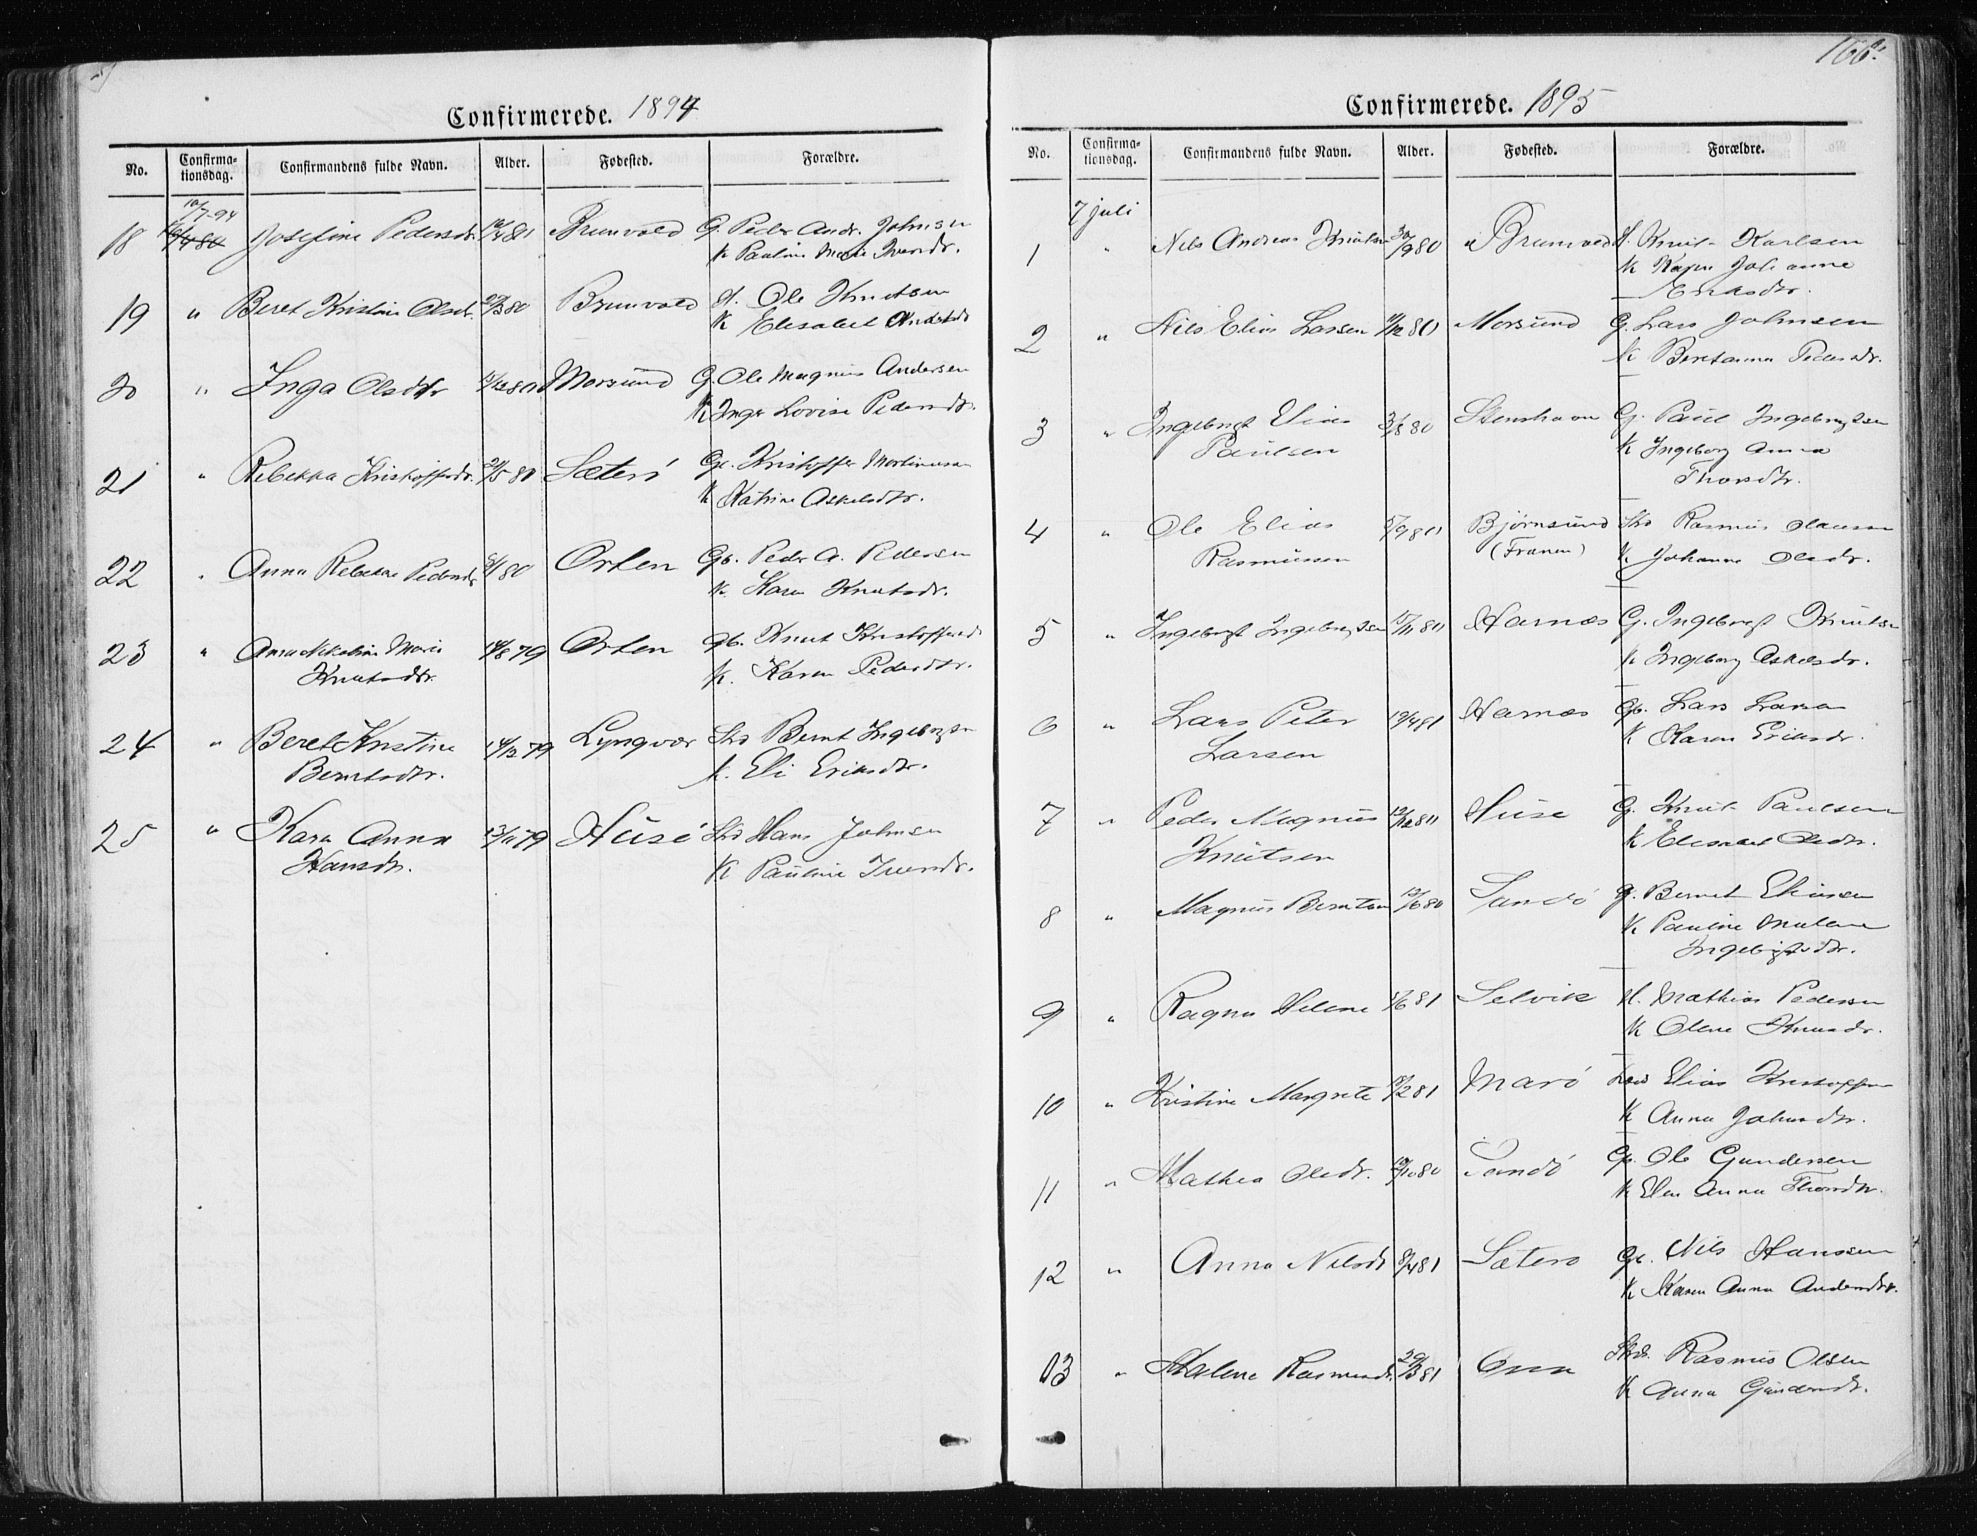 166.
Confirmerede. 1894
No. Confirma-tionsdag. Confirmandens fulde Navn. Alder. Fødested. Forældre.
18 10/7-94 Josefine Pedersdr. Brunvold G. Peder Andr. Johnsen
K Pauline Marie Iversdr.
19 " Beret Kristine Olsdr. Brunvold Ole Knutsen
K Elisabet
20 " Inga Olsdtr Morsund G. Ole Magnus Andersen
K Inger Lovise Pedersdtr.
21 " Rebekka Kristoffersdr. Sæterö Kristoffer Martinusen
K Katrine Askelsdtr.
22 " Anna Rebekka Pedersdr. Orten Gb. Peder A. Pedersen
K. Karen Knutsdr.
23 " Anna Nikoline Marie 79 Orten Gb. Knut Kristoffersen
Knutsdtr. K. Karen Pedersdtr.
24 " Beret Kristine 79 Lyngvær Bernt Ingebrigtsen
Berntsdtr. K. Eli Eriksdtr.
25 " Karen Anna 79 Husö Hans Johnsen
Hansdtr. K Pauline Iversdr.
Confirmerede. 1895
No. Confirma-tionsdag. Confirmandens fulde Navn. Alder. Fødested. Forældre.
7 juli
1 " Nils Andreas Knutsen 30/9 80 Brunvold Knut Karlsen
K Karen Johanne
Eriksdtr.
2 " Nils Elias Larsen 80 Morsund G. Lars Johnsen
K Beretanna Pedersdtr.
3 " Ingebrigt Elias 80 Stenshavn G. Paul Ingebrigtsen
Paulsen K Ingeborg Anna
Thorsdtr.
4 " Ole Elias Björnsund Rasmus Olausen
Rasmussen (Frænen) K Johanne Olsdr.
5 " Ingebrigt Ingebrigtsen Harnæs G. Ingebrigt Knutsen
K Ingeborg Askelsdr.
6 " Lars Peter 19/4 81 Harnæs Gb. Lars Larsen
Larsen K Karen Eriksdr.
7 " Peder Magnus Huse G. Knut Paulsen
Knutsen K Elisabet Olsdtr.
8 " Magnus Berntsen 80 Sandö G. Bernt Eliassen
K Pauline Malene
Ingebrigtsdtr.
9 " Ragna Helene 81 Selvik Mathias Pedersen
K Olene Knutsdr.
10 " Kristine Margrete 81 Marö Elias Kristoffersen
K Anna Johnsdtr.
11 " Mathea Olsdr. 80 Sandö Gb. Ole Gundersen
K Elen Anna Thorsdtr.
12 " Anna Nilsdr 8/4 81 Sæterö Nils Hanssen
K Karen Anna Andersdtr.
13 " Malene Rasmusdr. 29/3 81 Ona Rasmus Olsen
K Anna Gundersdr.